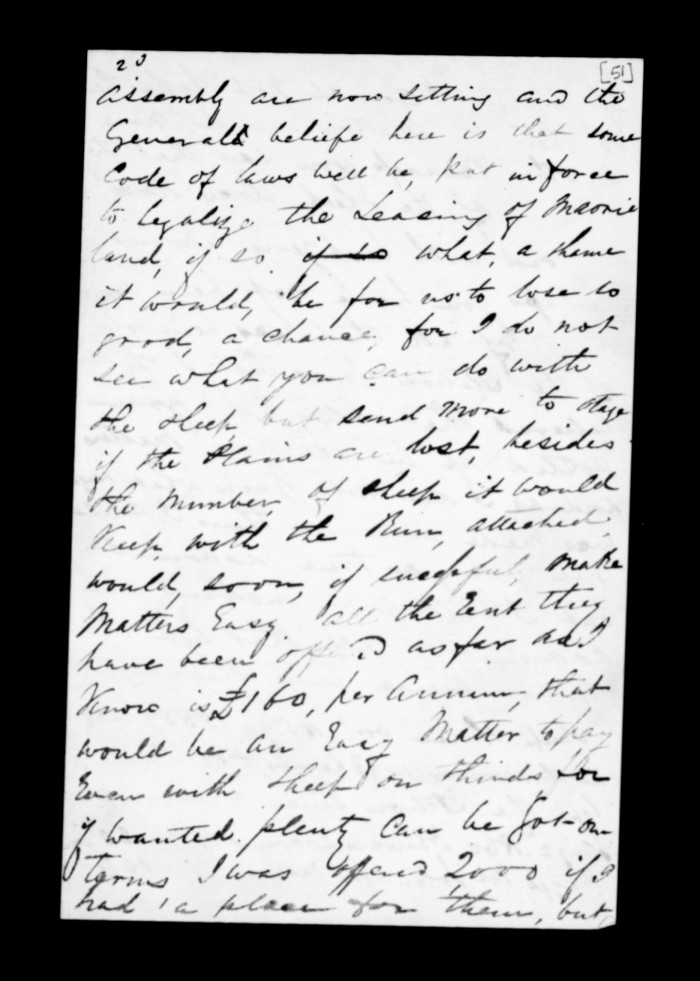 20 [51]
Assembly are now sitting and the
General beliefe here is that some
Code of laws will be, put in force
to legalize the Leasing of Maorie
land, if so if so what, a shame
it would, be for us to lose so
good, a chance, for I do not
see what you can do with
the sheep but send more to
if the Plains are lost, besides
the number, of sheep it would
Keep, with the Run, attached
would, soon, if successful, make
Matters Easy. all the Rent they
have been offerd as far as I
Know is £160, per Annum, that
would be an Easy Matter to pay
Even with sheep on thirds for
if wanted. plenty can be got on
terms I was offerd 2000 if I
had a place for them, but,